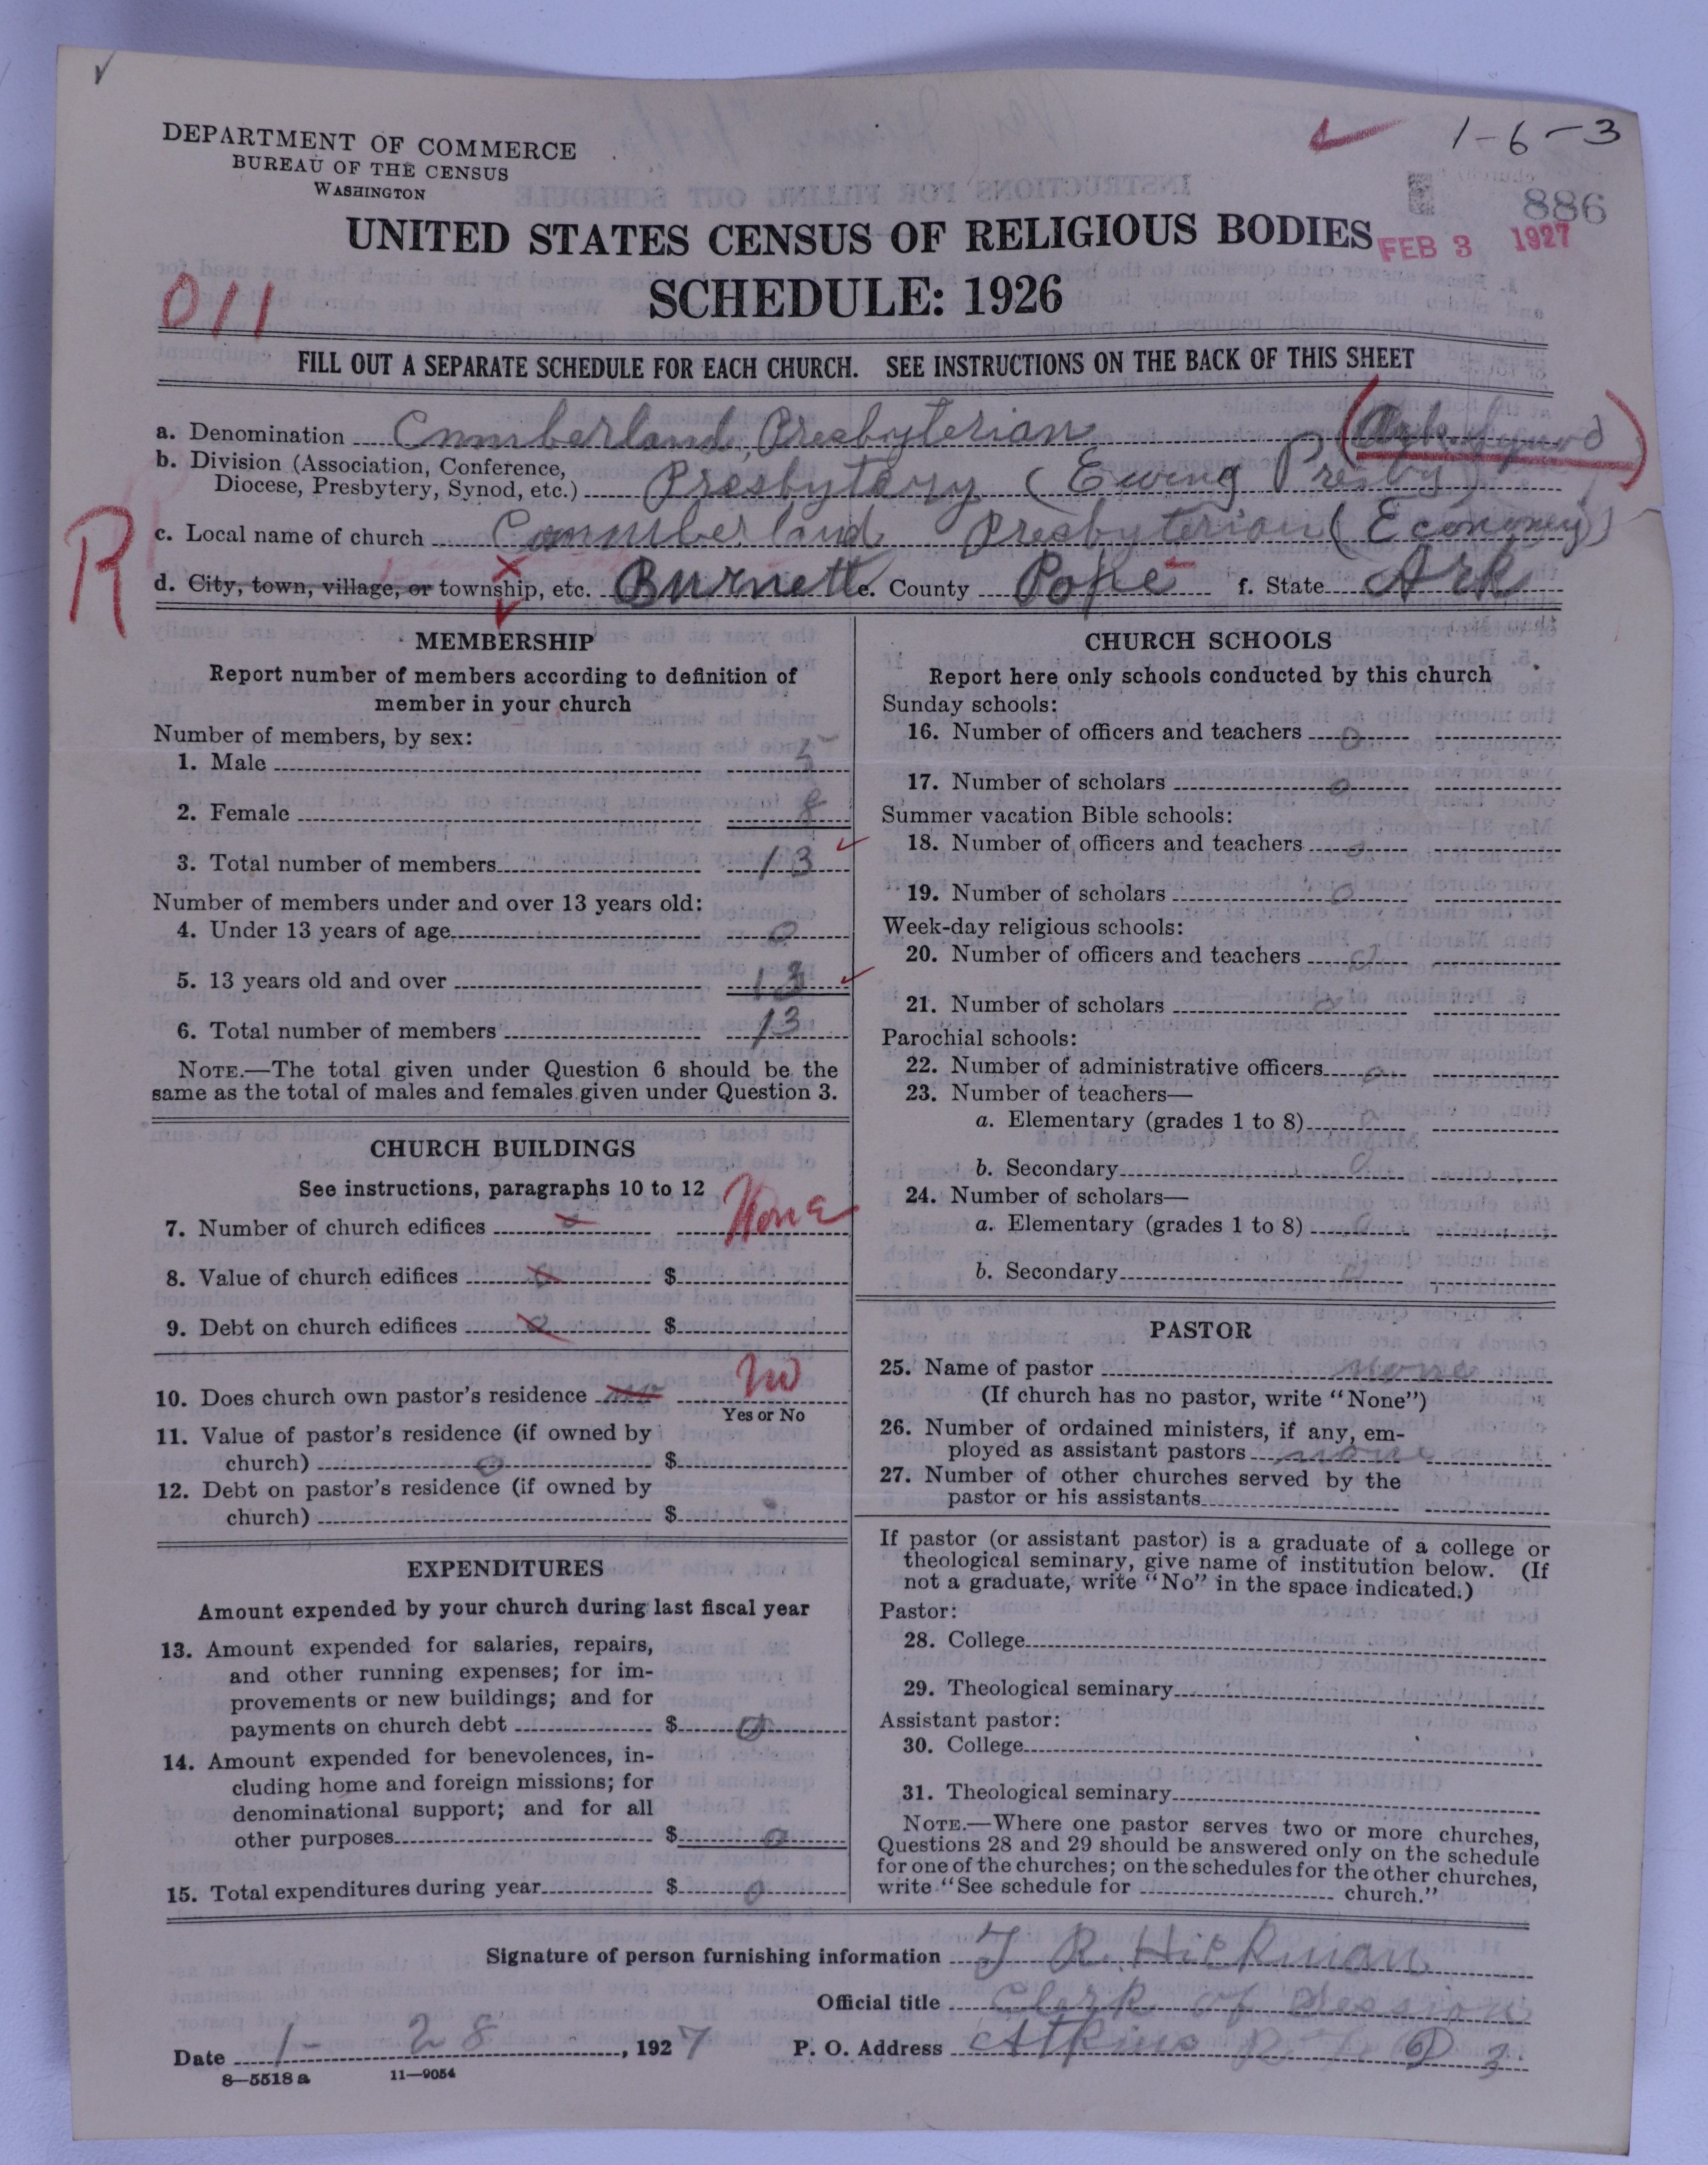 ✓
1-6-3
DEPARTMENT OF COMMERCE
BUREAU OF THE CENSUS
WASHINGTON
886
UNITED STATES CENSUS OF RELIGIOUS BODIES
FEB 3 1927
SCHEDULE: 1926
011
FILL OUT A SEPARATE SCHEDULE FOR EACH CHURCH. SEE INSTRUCTIONS ON THE BACK OF THIS SHEET
a. Denomination Cumberland, Presbyterian (Ark. Synod)
b. Division (Association, Conference,
Diocese, Presbytery, Synod, etc.) Presbytery (Ewing Presby)
R
c. Local name of church Cummberland Presbyterian (Economy)
d. City, town, village, or township, etc. Burnett e. County Pope f. State Ark
MEMBERSHIP
Report number of members according to definition of
member in your church
Number of members, by sex:
1. Male 5
2. Female 8
3. Total number of members 13
Number of members under and over 13 years old:
4. Under 13 years of age 0
5. 13 years old and over 13
6. Total number of members 13
NOTE.—The total given under Question 6 should be the
same as the total of males and females given under Question 3.
CHURCH BUILDINGS
See instructions, paragraphs 10 to 12
7. Number of church edifices 0 None
8. Value of church edifices 0 $
9. Debt on church edifices 0 $
10. Does church own pastor's residence no No
Yes or No
11. Value of pastor's residence (if owned by
church) 0 $
12. Debt on pastor's residence (if owned by
church) $
EXPENDITURES
Amount expended by your church during last fiscal year
13. Amount expended for salaries, repairs,
and other running expenses; for im-
provements or new buildings; and for
payments on church debt $ 0
14. Amount expended for benevolences, in-
cluding home and foreign missions; for
denominational support; and for all
other purposes $ 0
15. Total expenditures during year $ 0
CHURCH SCHOOLS
Report here only schools conducted by this church
Sunday schools:
16. Number of officers and teachers 0
17. Number of scholars 0
Summer vacation Bible schools:
18. Number of officers and teachers 0
19. Number of scholars 0
Week-day religious schools:
20. Number of officers and teachers 0
21. Number of scholars 0
Parochial schools:
22. Number of administrative officers 0
23. Number of teachers—
a. Elementary (grades 1 to 8) 0
b. Secondary 0
24. Number of scholars—
a. Elementary (grades 1 to 8) 0
b. Secondary 0
PASTOR
25. Name of pastor none
(If church has no pastor, write "None")
26. Number of ordained ministers, if any, em-
ployed as assistant pastors none
27. Number of other churches served by the
pastor or his assistants
If pastor (or assistant pastor) is a graduate of a college or
theological seminary, give name of institution below. (If
not a graduate, write "No" in the space indicated.)
Pastor:
28. College
29. Theological seminary
Assistant pastor:
30. College
31. Theological seminary
NOTE.—Where one pastor serves two or more churches,
Questions 28 and 29 should be answered only on the schedule
for one of the churches; on the schedules for the other churches,
write "See schedule for church."
Signature of person furnishing information J R. Hickman
Official title Clerk of Session
Date 1-28, 1927 P. O. Address Atkins R F D 3.
8—5518 a 11—9054